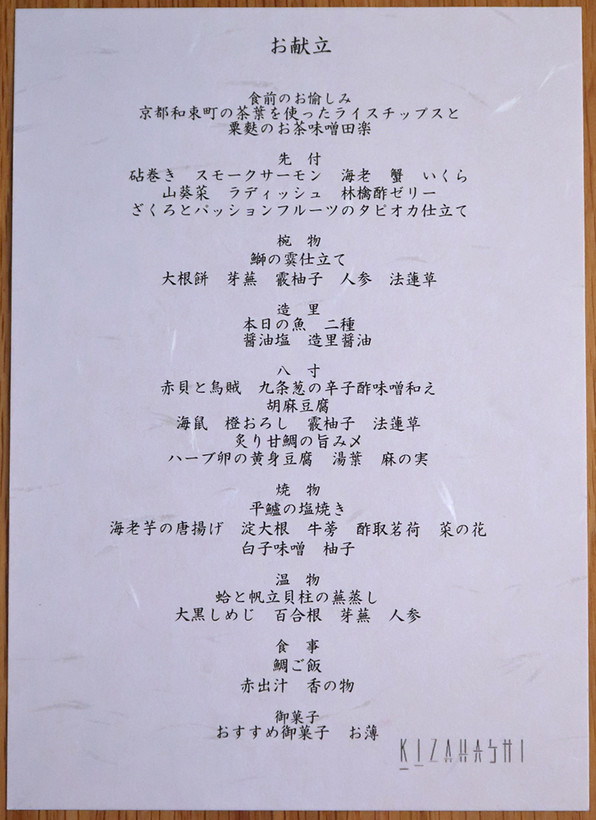 お献立
食前のお愉しみ
京都和束町の茶葉を使ったライスチップスと
粟麩のお茶味噌田楽
先　付
砧巻き　スモークサーモン　海老　蟹　いくら
山葵菜　ラディッシュ　林檎酢ゼリー
ざくろとパッションフルーツのタピオカ仕立て
椀　物
鰤の霙仕立て
大根餅　芽蕪　霰柚子　人参　法蓮草
造　里
本日の魚　二種
醤油塩　造里醤油
八　寸
赤貝と烏賊　九条葱の辛子酢味噌和え
胡麻豆腐
海鼠　橙おろし　霰柚子　法蓮草
炙り甘鯛の旨み〆
ハーブ卵の黄身豆腐　湯葉　麻の実
焼　物
平鱸の塩焼き
海老芋の唐揚げ　淀大根　牛蒡　酢取茗荷　菜の花
白子味噌　柚子
温　物
蛤と帆立貝柱の蕪蒸し
大黒しめじ　百合根　芽蕪　人参
食　事
鯛ご飯
赤出汁　香の物
御菓子
おすすめ御菓子　お薄
KIZAHASHI